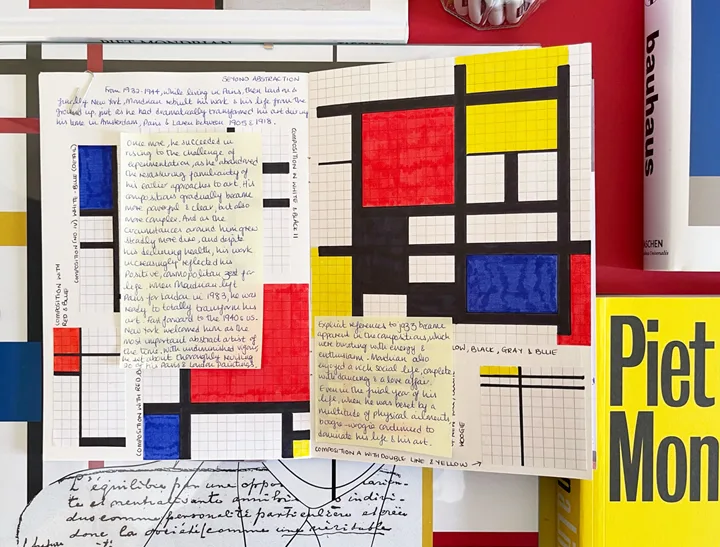 PIET MONDRIAN
BEYOND ABSTRACTION
From 1932-1944, while living in Paris, then London &
finally New York, Mondrian rebuilt his work & his life from the
ground up, just as he had dramatically transformed his art during
his time in Amsterdam, Paris & Laren between 1905 & 1918.
Once more, he succeeded in
rising to the challenge of
experimentation, as he abandoned
the reassuring familiarity of
his earlier approaches to art. His
compositions gradually became
more powerful & clear, but also
more complex. And as the
circumstances around him grew
steadily more dire, and despite
his declining health, his work
increasingly reflected his
positive, cosmopolitan zest for
life. When Mondrian left
Paris for London in 1938, he was
ready to totally transform his
art. Fast forward to the 1940s &
New York welcomed him as the
most important abstract artist of
the time. With undiminished vigour,
he set about thoroughly revising
of his Paris & London Paintings.
COMPOSITION (NO. IV) WHITE - BLUE
COMPOSITION WITH
RED & BLUE
COMPOSITION IN WHITE & BLACK II
COMPOSITION WITH RED, B
Explicit references to 1933 became
apparent in the compositions, which
were bursting with energy &
enthusiasm. Mondrian also
enjoyed a rich social life, complete
with dancing & a love affair.
Even in the final year of his
life, when he was beset by a
multitude of physical ailments
boogie-woogie continued to
dominate his life & his art.
LOW, BLACK, GRAY & BLUE
COMPOSITION A WITH DOUBLE LINE & YELLOW →
bauhaus
Piet
Mon
L'équilibre par une oppo
te et prend
dus comme personalité particulière et crée
donc la société (comme une véritable